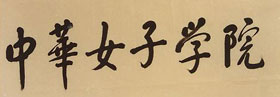 中華女子学院